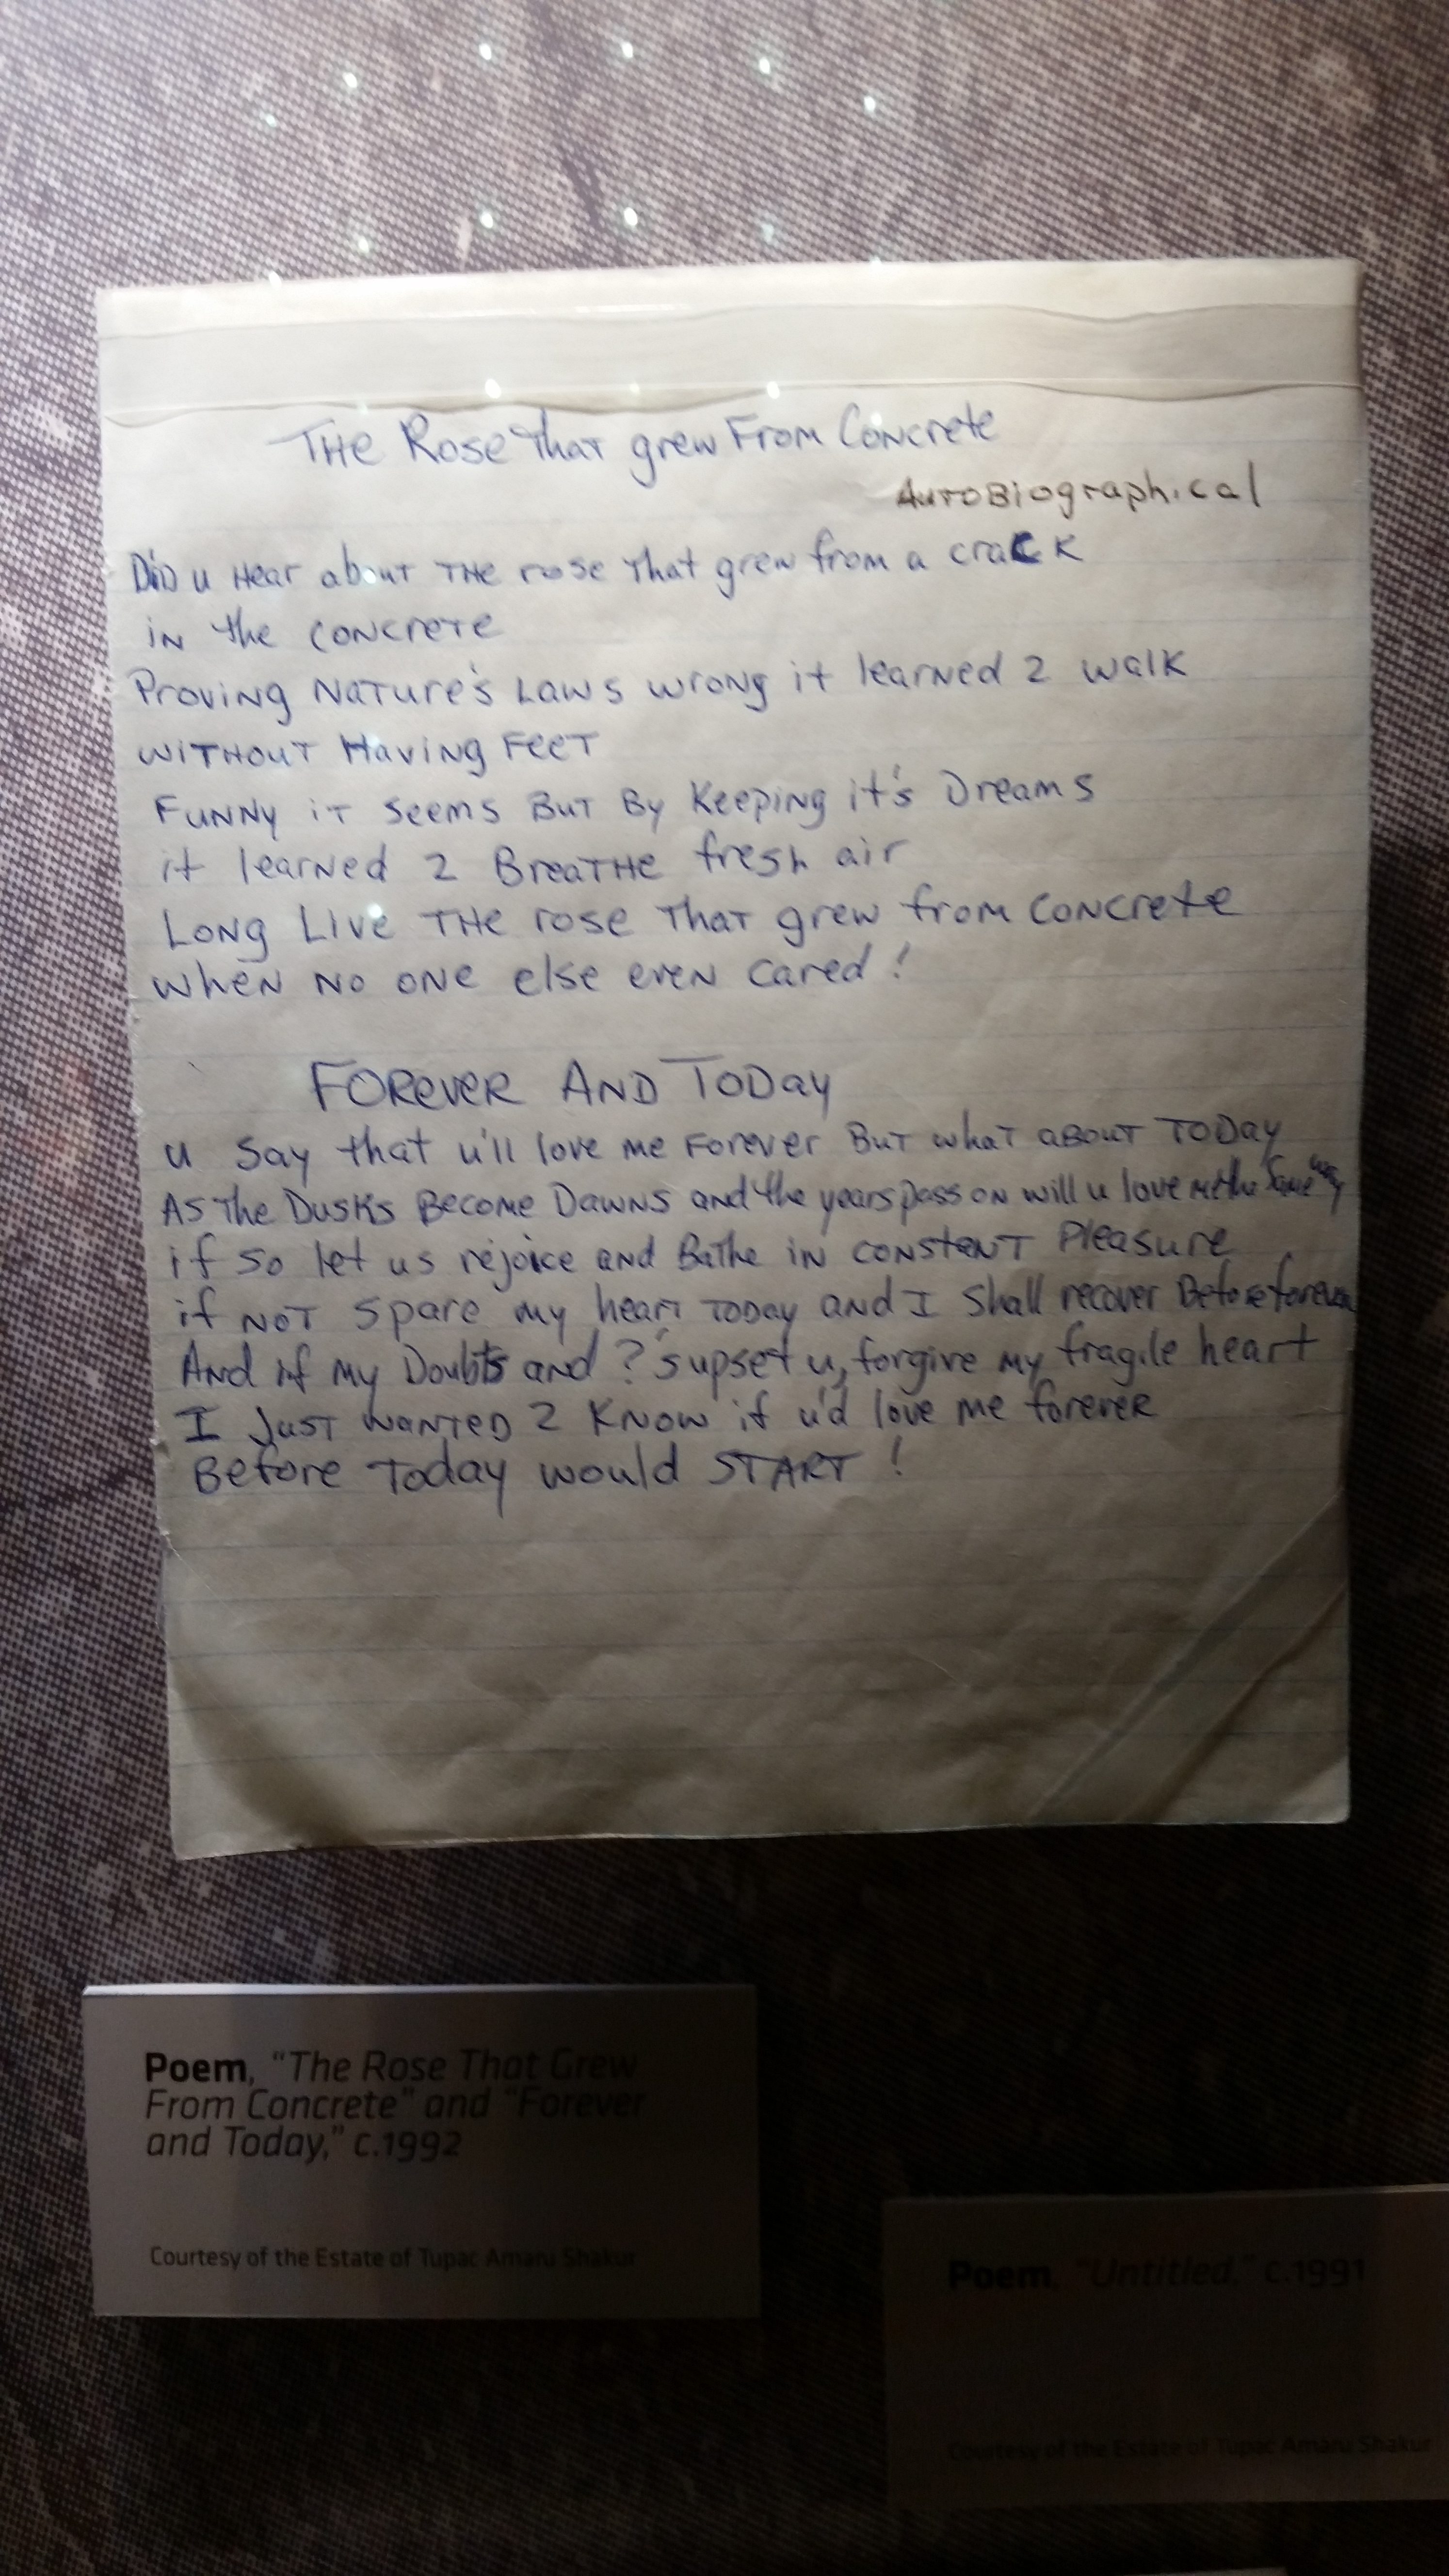 THE Rose That grew From Concrete
AutoBiographical
Did u Hear about THE rose That grew from a crack
in the concrete
Proving Nature's Laws wrong it learned 2 walk
without Having Feet
Funny it seems But By Keeping it's Dreams
it learned 2 Breathe fresh air
Long Live THE rose That grew from concrete
when no one else even cared!
Forever And Today
u say that u'll love me Forever But what about Today
As The Dusks Become Dawns and the years pass on will u love me the same way
if so let us rejoice and Bathe in constant Pleasure
if NOT spare my heart Today and I shall recover Before forever
And if my Doubts and ?'s upset u, forgive my fragile heart
I Just wanted 2 Know if u'd love me forever
Before Today would START!
Poem, "The Rose That Grew
From Concrete" and "Forever
and Today," c.1992
Courtesy of the Estate of Tupac Amaru Shakur
Poem, "Untitled," c.1991
Courtesy of the Estate of Tupac Amaru Shakur